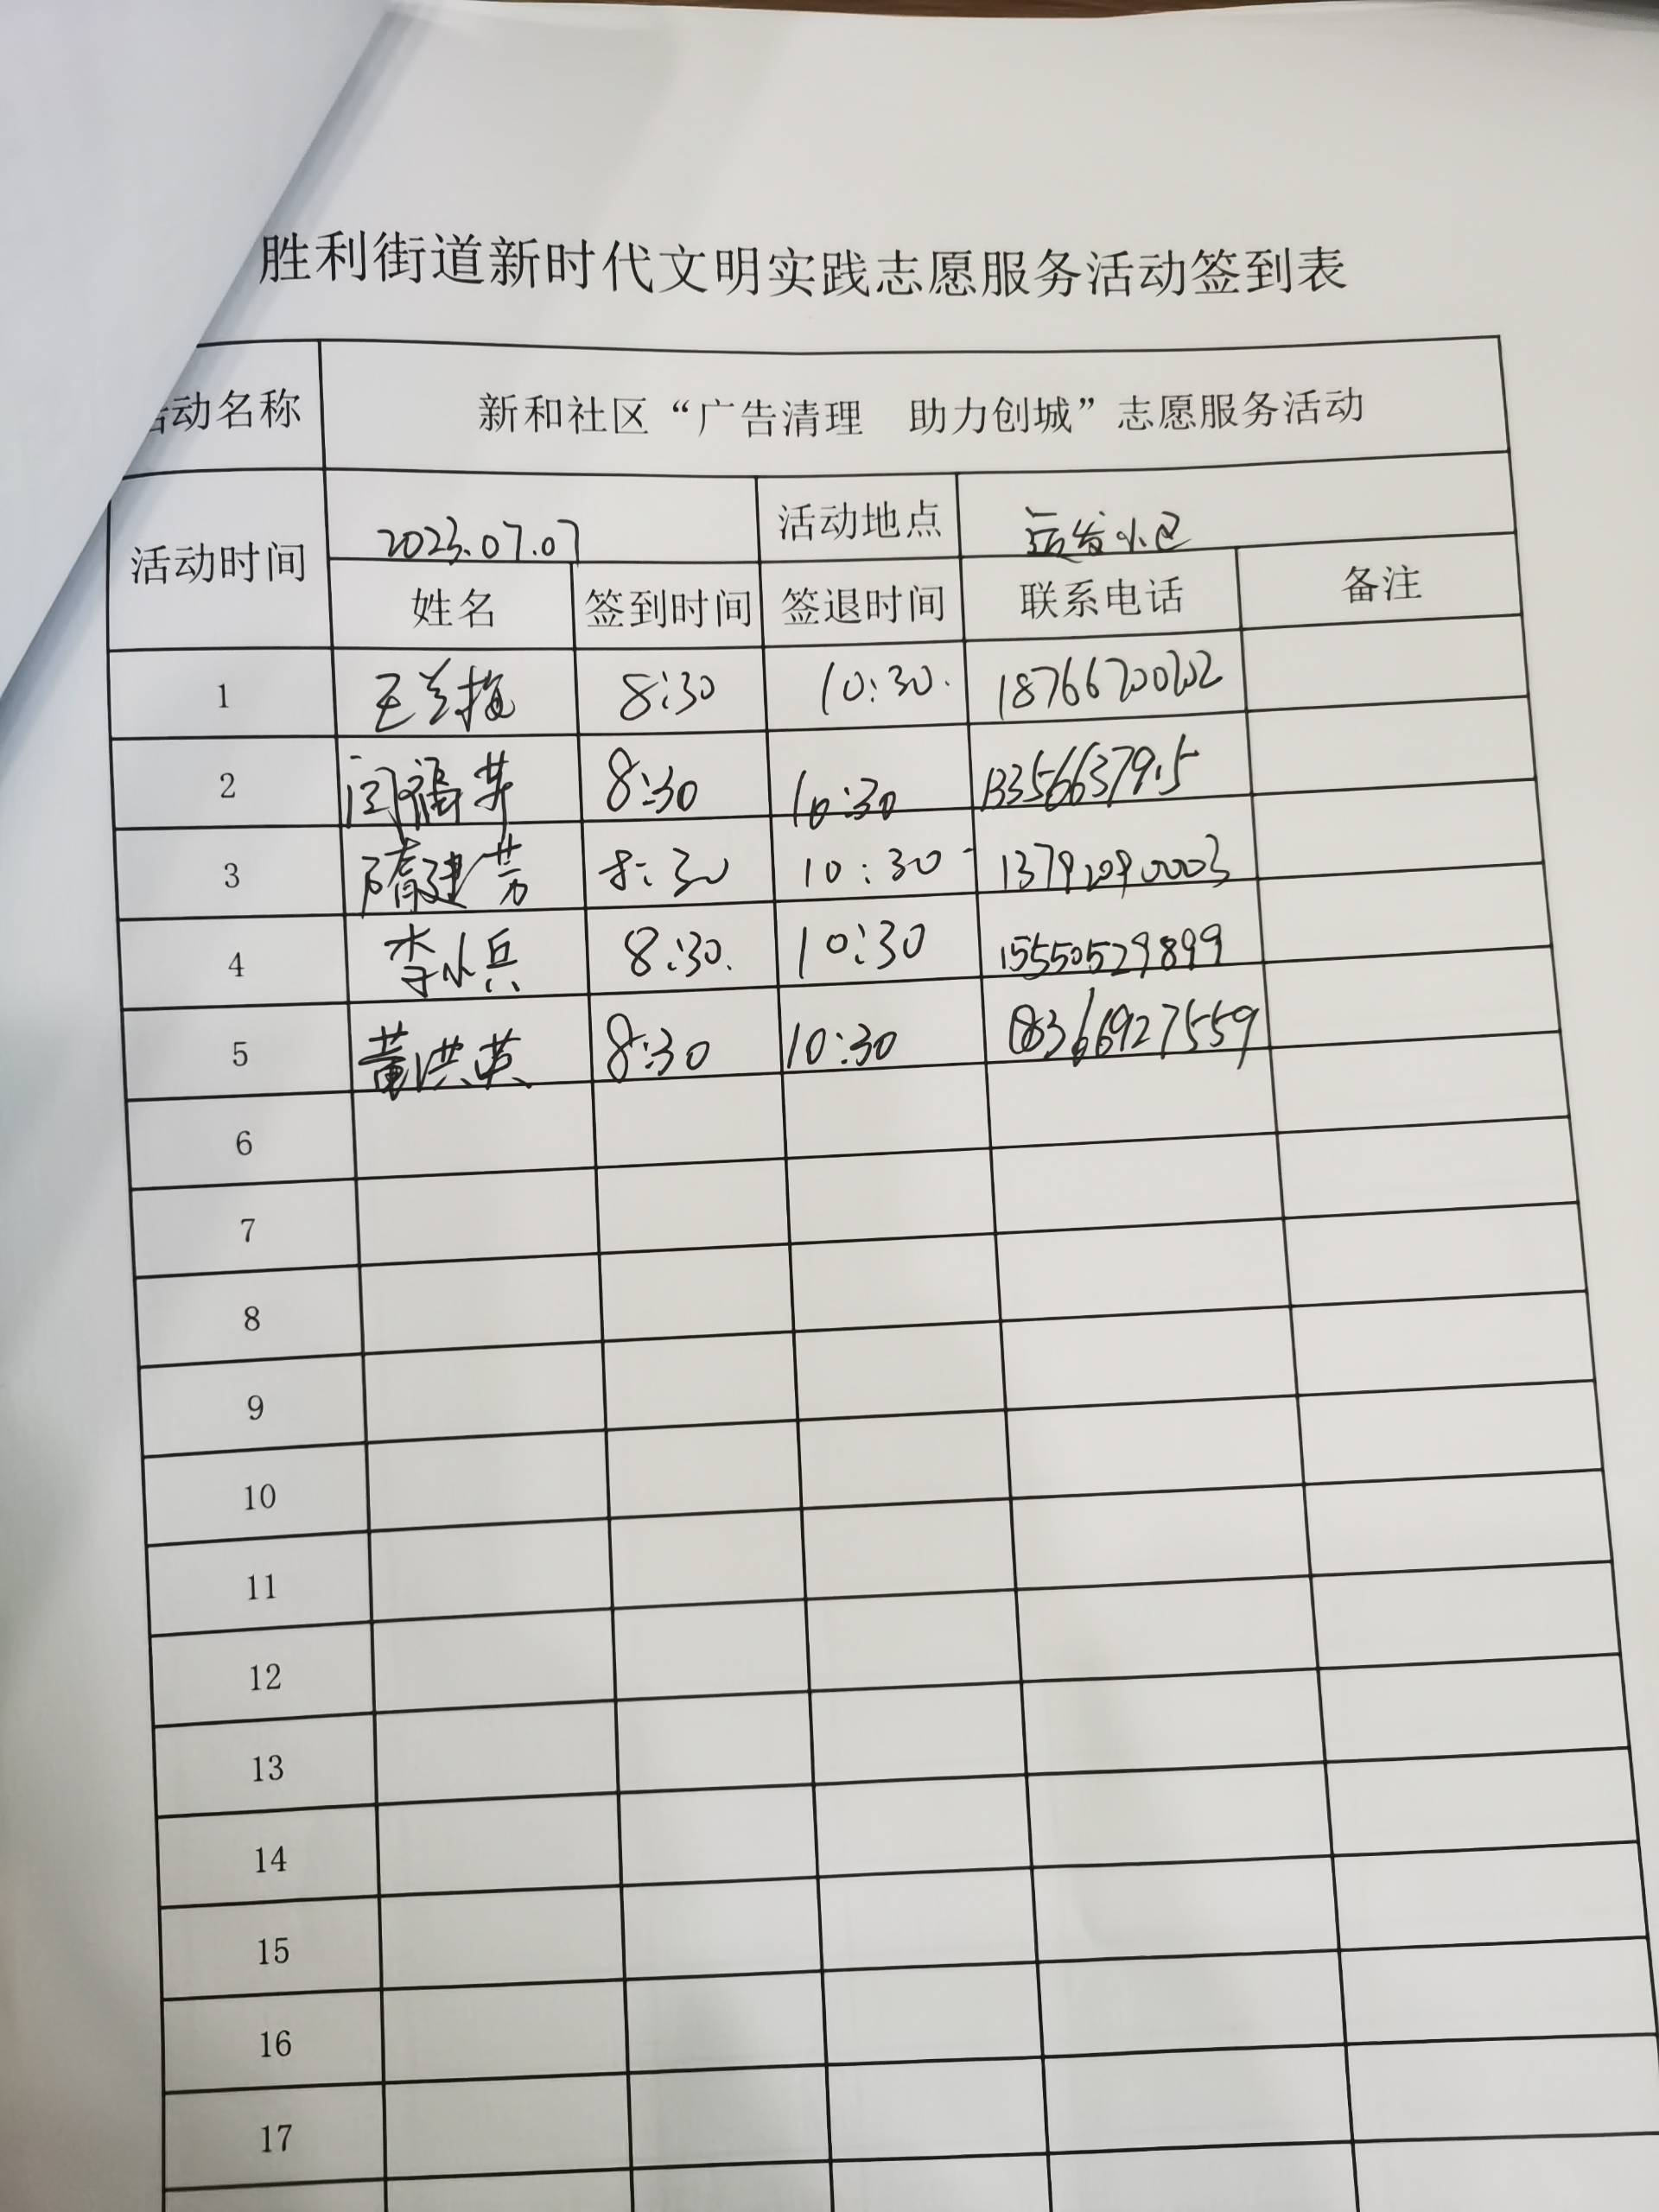 胜利街道新时代文明实践志愿服务活动签到表
活动名称 新和社区“广告清理 助力创城”志愿服务活动
活动时间 2023.07.07 活动地点 运发小区
姓名 签到时间 签退时间 联系电话 备注
1 王兰梅 8:30 10:30. 18766700202
2 闫福英 8:30 10:30
3 隋建芳 8:30 10:30 13792090003
4 李小兵 8:30. 10:30 15550529899
5 黄洪英 8:30 10:30 18366927559
6
7
8
9
10
11
12
13
14
15
16
17